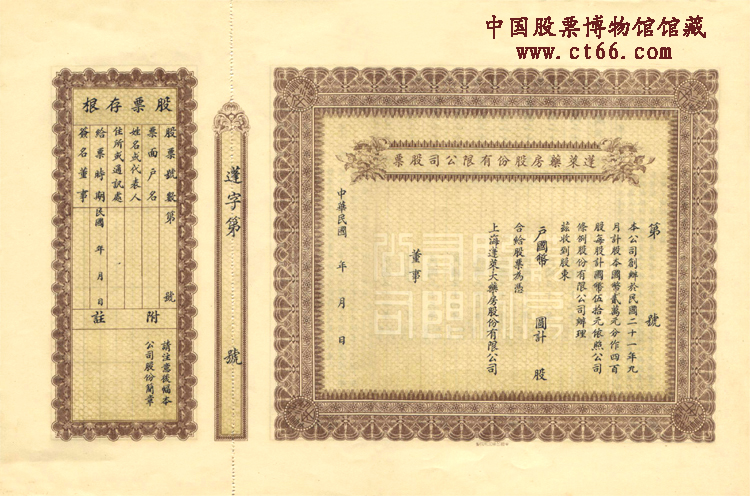 中国股票博物馆馆藏
www.ct66.com
蓬萊藥房股份有限公司股票
第　號
本公司創辦於民國二十一年九
月計股本國幣貳萬元分作四百
股每股計國幣伍拾元依照公司
條例股份有限公司辦理
茲收到股東
戶國幣　圓計　股
合給股票為憑
上海蓬萊大藥房股份有限公司
董事
中華民國　年　月　日
蓬字第　號
股票存根
股票號數第　號
票面戶名
姓名或代表人
住所或通訊處
給票時期民國　年　月　日
簽名董事
附註
請注意後幅本
公司股份簡章